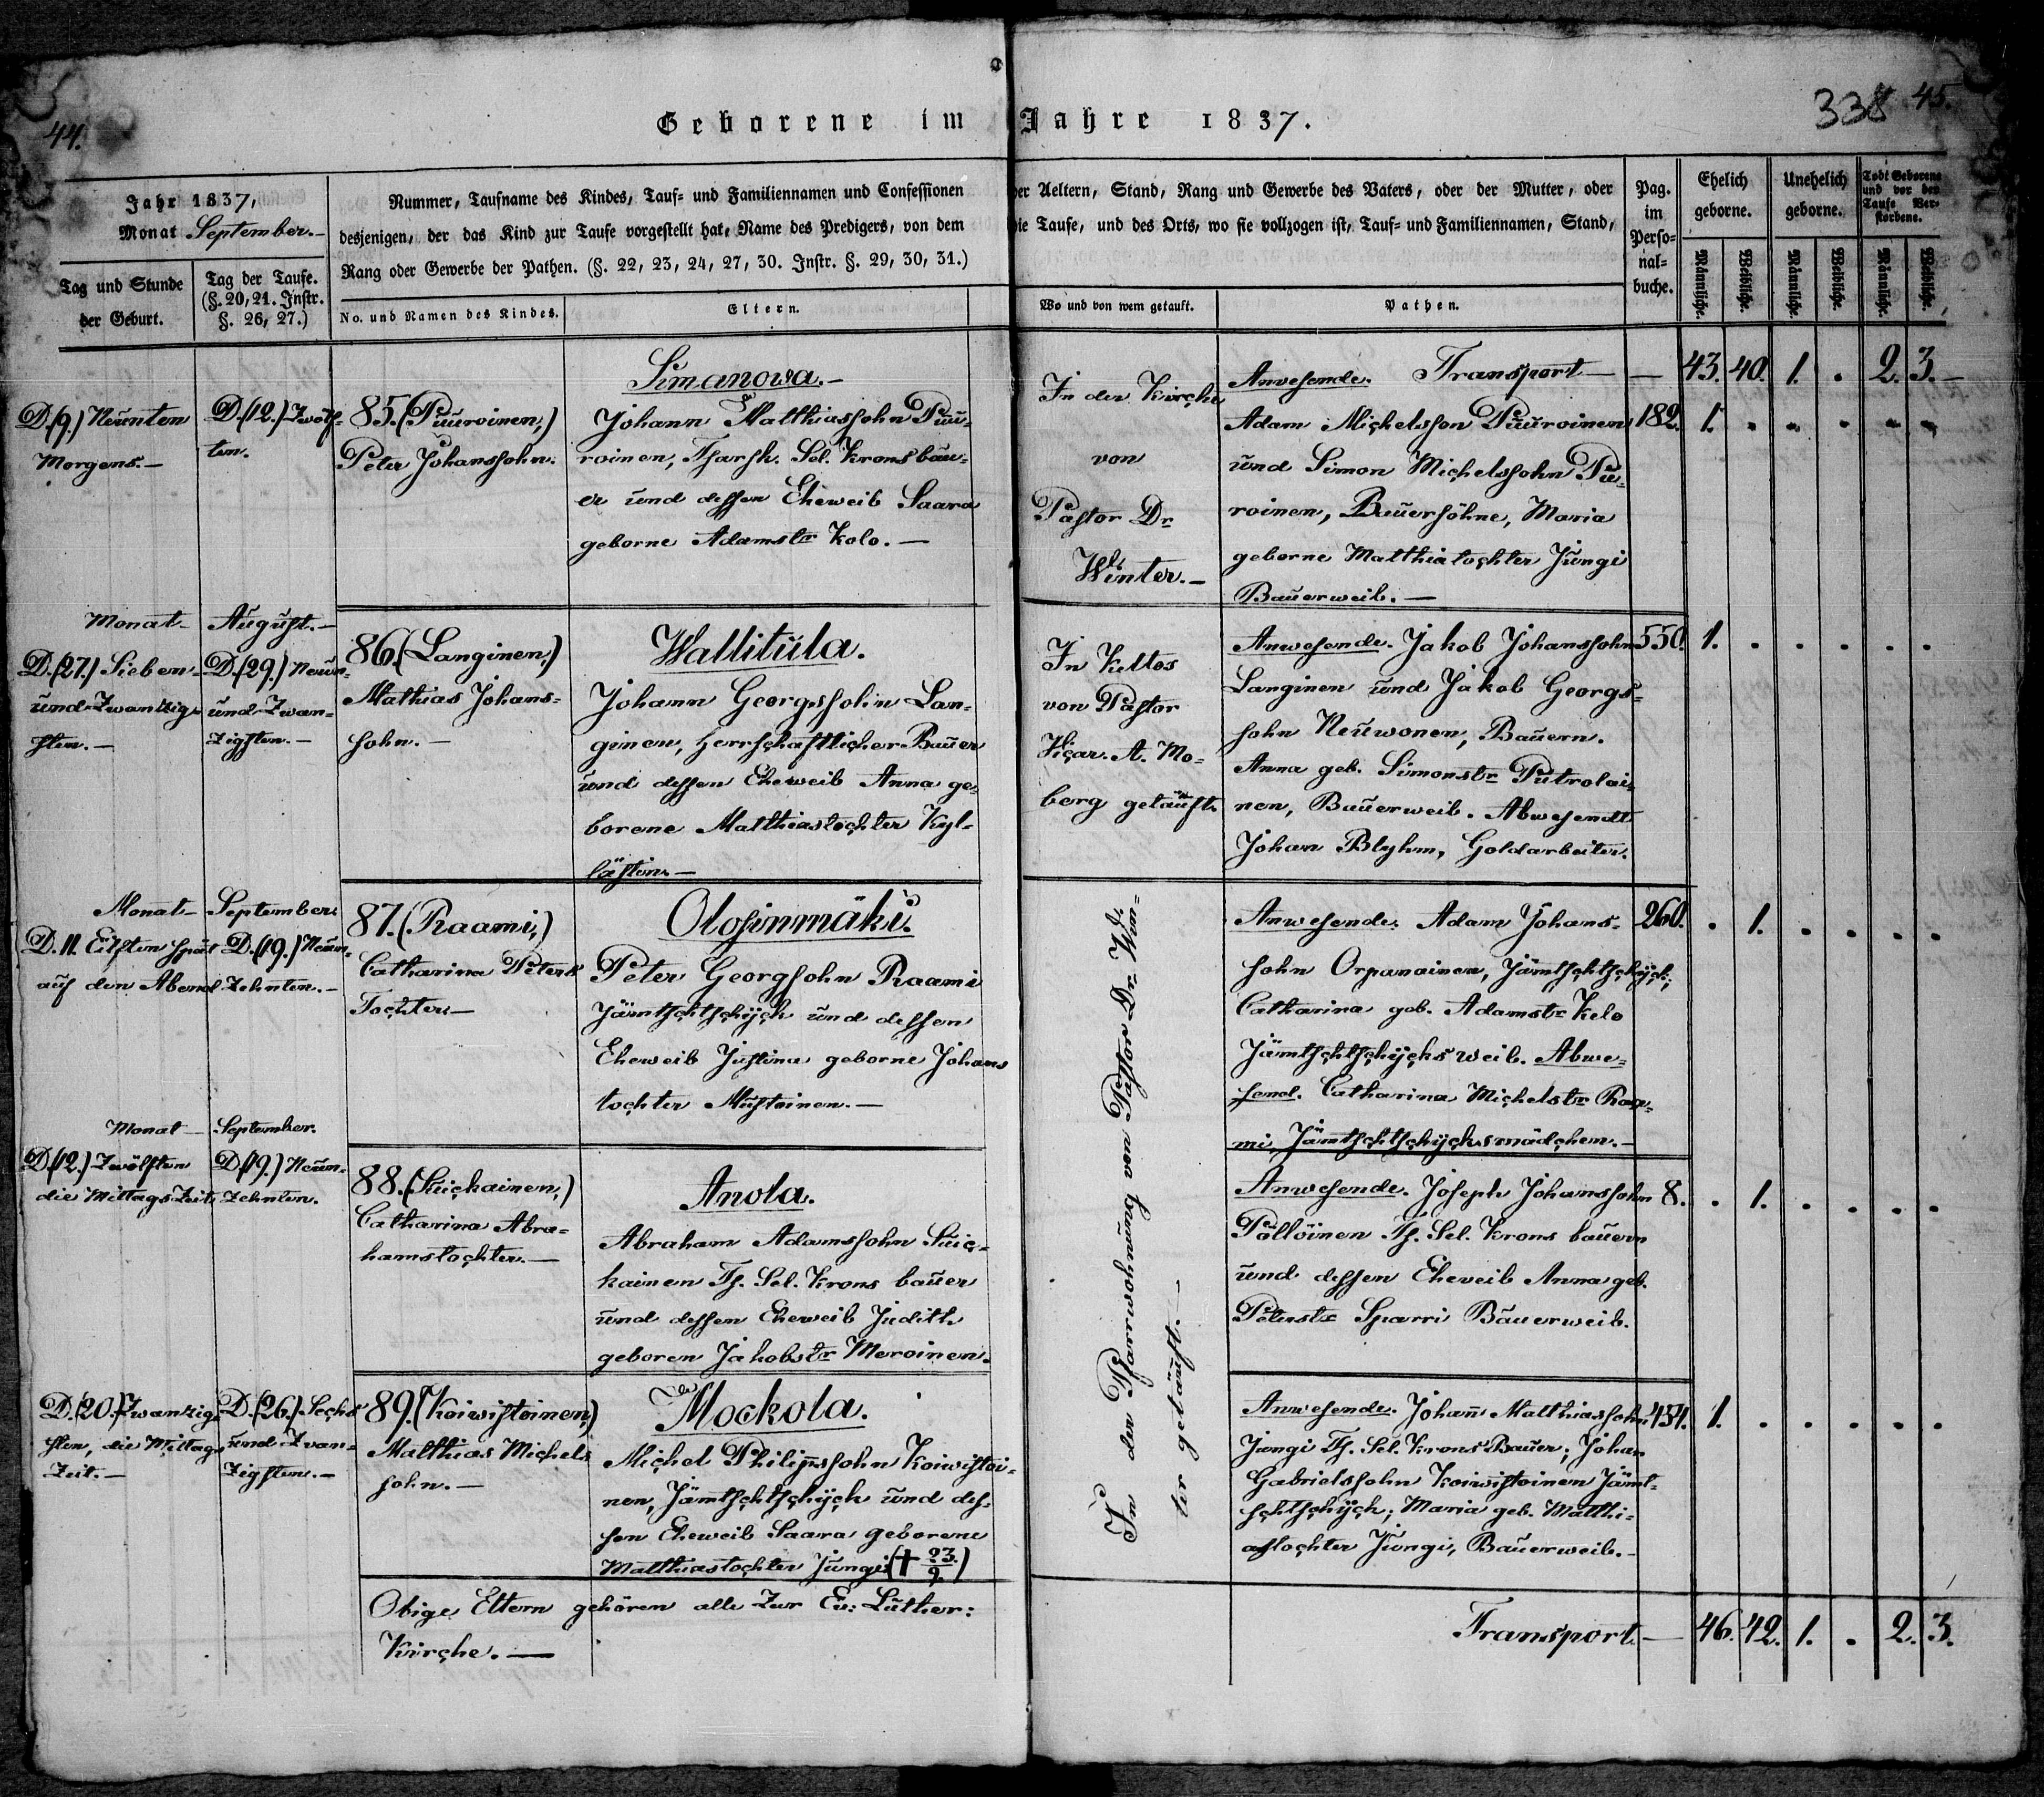 44.
Geborene im Jahre 1837.
338 45.
Jahr 1837,
Monat September.
Tag und Stunde
der Geburt.
Tag der Taufe.
(§. 20, 21. Instr.
§. 26, 27.)
Nummer, Taufname des Kindes, Tauf- und Familiennamen und Confessionen der Aeltern, Stand, Rang und Gewerbe des Vaters, oder der Mutter, oder
desjenigen, der das Kind zur Taufe vorgestellt hat, Name des Predigers, von dem die Taufe, und des Orts, wo sie vollzogen ist, Tauf- und Familiennamen, Stand,
Rang oder Gewerbe der Pathen. (§. 22, 23, 24, 27, 30. Instr. §. 29, 30, 31.)
No. und Namen des Kindes.
Eltern.
Wo und von wem getauft.
Pathen.
Pag.
im
Perso-
nal-
buche.
Ehelich
geborne.
Unehelich
geborne.
Todt Geborene
und vor der
Taufe Ver-
storbene.
Männliche.
Weibliche.
Männliche.
Weibliche.
Männliche.
Weibliche.
D. (9.) Neunten
Morgens.—
D. (12.) Zwölf-
ten.
85. (Puuroinen,)
Peter Johanssohn.
Simanowa.—
Johann Matthiassohn Puu-
roinen, Tsarsk. Sel. Kronsbau-
er und dessen Eheweib Saara
geborne Adamstr Kolo.—
In der Kirche
von
Pastor Dr.
Winter.—
Anwesende. Transport — — 43. 40. 1. . 2. 3.—
Adam Michelsson Puuroinen 182. 1. . . . . .
und Simon Michelssohn Pu-
roinen, Bauersöhne, Maria
geborne Matthiatochter Jungi
Bauerweib.—
Monat August.—
D. (27.) Sieben-
und Zwanzig-
sten.—
D. (29.) Neun-
und Zwan-
zigsten.—
86. (Langinen,)
Mathias Johans-
sohn.—
Wallitula.
Johann Georgssohn Lan-
ginen, herrschaftlicher Bauer
und dessen Eheweib Anna ge-
borene Matthiastochter Kyl-
lästin.—
In Keltos
von Pastor
Vicar. A. Mo-
berg getauft.
Anwesende. Jakob Johanssohn 550. 1. . . . . .
Langinen und Jakob Georgs-
sohn Neuwonen, Bauern.
Anna geb. Simonstr Putrolai-
nen, Bauerweib. Abwesendt
Johan Blyhm, Goldarbeiter.
Monat September
D. 11. Eilften spät
auf den Abend
D. (19.) Neun-
Zehnten.—
87. (Raami,)
Catharina Peters
Tochter—
Olosinmäki.
Peter Georgsohn Raami
Jämtschtschijck und dessen
Eheweib Justina geborne Johans
tochter Mustoinen.—
In der Pfarrwohnung von Pastor Dr. Win-
ter getauft.—
Anwesende. Adam Johans- 260. . 1. . . . .
sohn Orpanainen, Jämtschtschijck;
Catharina geb. Adamstr Kelo
Jämtschtschijcks weib. Abwe-
send. Catharina Michelstr Raa-
mi, Jämtschtschijcksmädchen.—
Monat — September.
D. (12.) Zwölften
die Mittags Zeit
D. (19.) Neun-
Zehnten.
88. (Suickainen,)
Catharina Abra-
hamstochter.—
Anola.
Abraham Adamssohn Suic-
kainen Ts. Sel. Krons bauer
und dessen Eheweib Judith
geboren Jakobstr Meroinen.
Anwesende. Joseph Johanssohn 8. . 1. . . . .
Pöllöinen Ts. Sel. Krons bauern
und dessen Eheweib Anna geb.
Peterstr Sparri Bauerweib.
D. (20.) Zwanzig-
sten, die Mittags
Zeit.—
D. (26.) Sechs
und Zwan-
zigsten.—
89. (Koiwistoinen,)
Matthias Michels
sohn.—
Mockola.
Michel Philipssohn Koiwistoi-
nen, Jämtschtschijck und des-
sen Eheweib Saara geborene
Matthiastochter Jungi († 23./9.)
Anwesende. Johann Matthiassohn 434. 1. . . . . .
Jungi Ts. Sel. Krons Bauer; Johan
Gabrielssohn Koiwistoinen Jämt-
schtschijck; Maria geb. Matthi-
astochter Jungi, Bauerweib.—
Obige Eltern gehören alle Zur Ev: Luther:
Kirche.—
Transport — 46. 42. 1. . 2. 3.